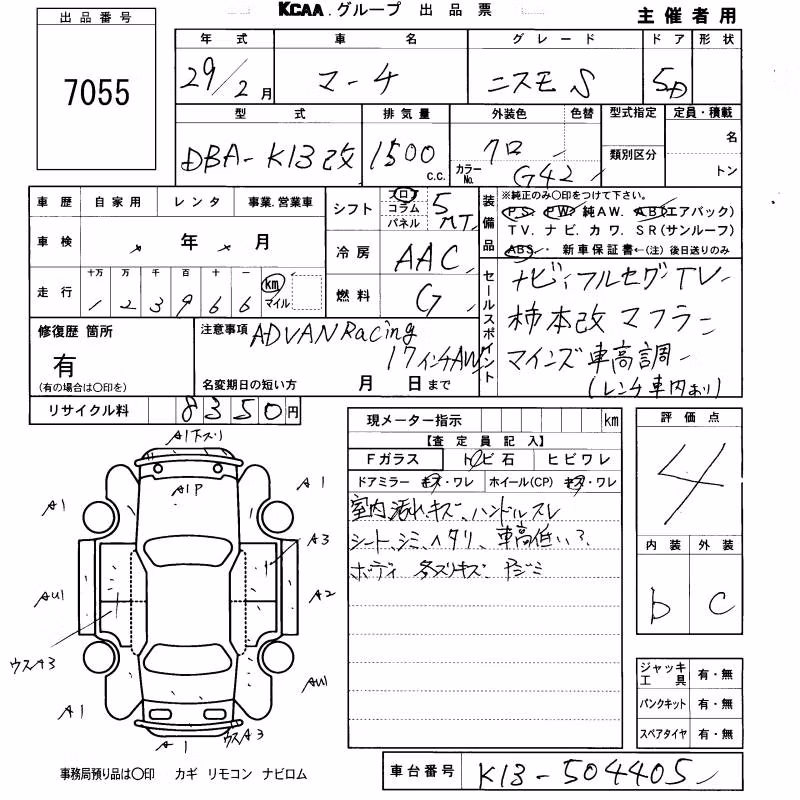 KCAA グループ 出品票
主催者用
出品番号
7055
年式 車名 グレード ドア 形状
29/2月 マーチ ニスモS 5D
型式 排気量 外装色 色替 型式指定 定員・積載
DBA-K13改 1500 c.c. クロ カラーNo. G42 類別区分 名 トン
車歴 自家用 レンタ 事業.営業車
シフト フロア コラム パネル 5 MT
装備品 ※純正のみ○印をつけて下さい。
PS. PW. 純AW. AB(エアバック)
TV. ナビ. カワ. SR(サンルーフ)
ABS. 新車保証書←(注) 後日送りのみ
車検 年 月
冷房 AAC
走行 十万 万 千 百 十 一
1 2 3 9 6 6 km マイル
燃料 G
セールスポイント
ナビ、フルセグTV
柿本改マフラー
マインズ車高調
(レンチ車内あり)
修復歴 箇所
有
(有の場合は○印を)
注意事項 ADVAN Racing
17インチAW
名変期日の短い方 月 日まで
リサイクル料 8350円
現メーター指示 km
【査定員記入】
Fガラス トビ石 ヒビワレ
ドアミラー キズ・ワレ ホイール(CP) キズ・ワレ
室内汚れ、キズ、ハンドルスレ
シート、シミ、ヘタリ、車高低い?
ボディ 各スリキズ
評価点
4
内装 外装
b c
A1下スリ
A1P
A1 A1
A3
AU1 A2
ウスA3
AU1
A1
A1 ウスA3
ジャッキ工具 有・無
パンクキット 有・無
スペアタイヤ 有・無
事務局預り品は○印 カギ リモコン ナビロム
車台番号 K13-504405